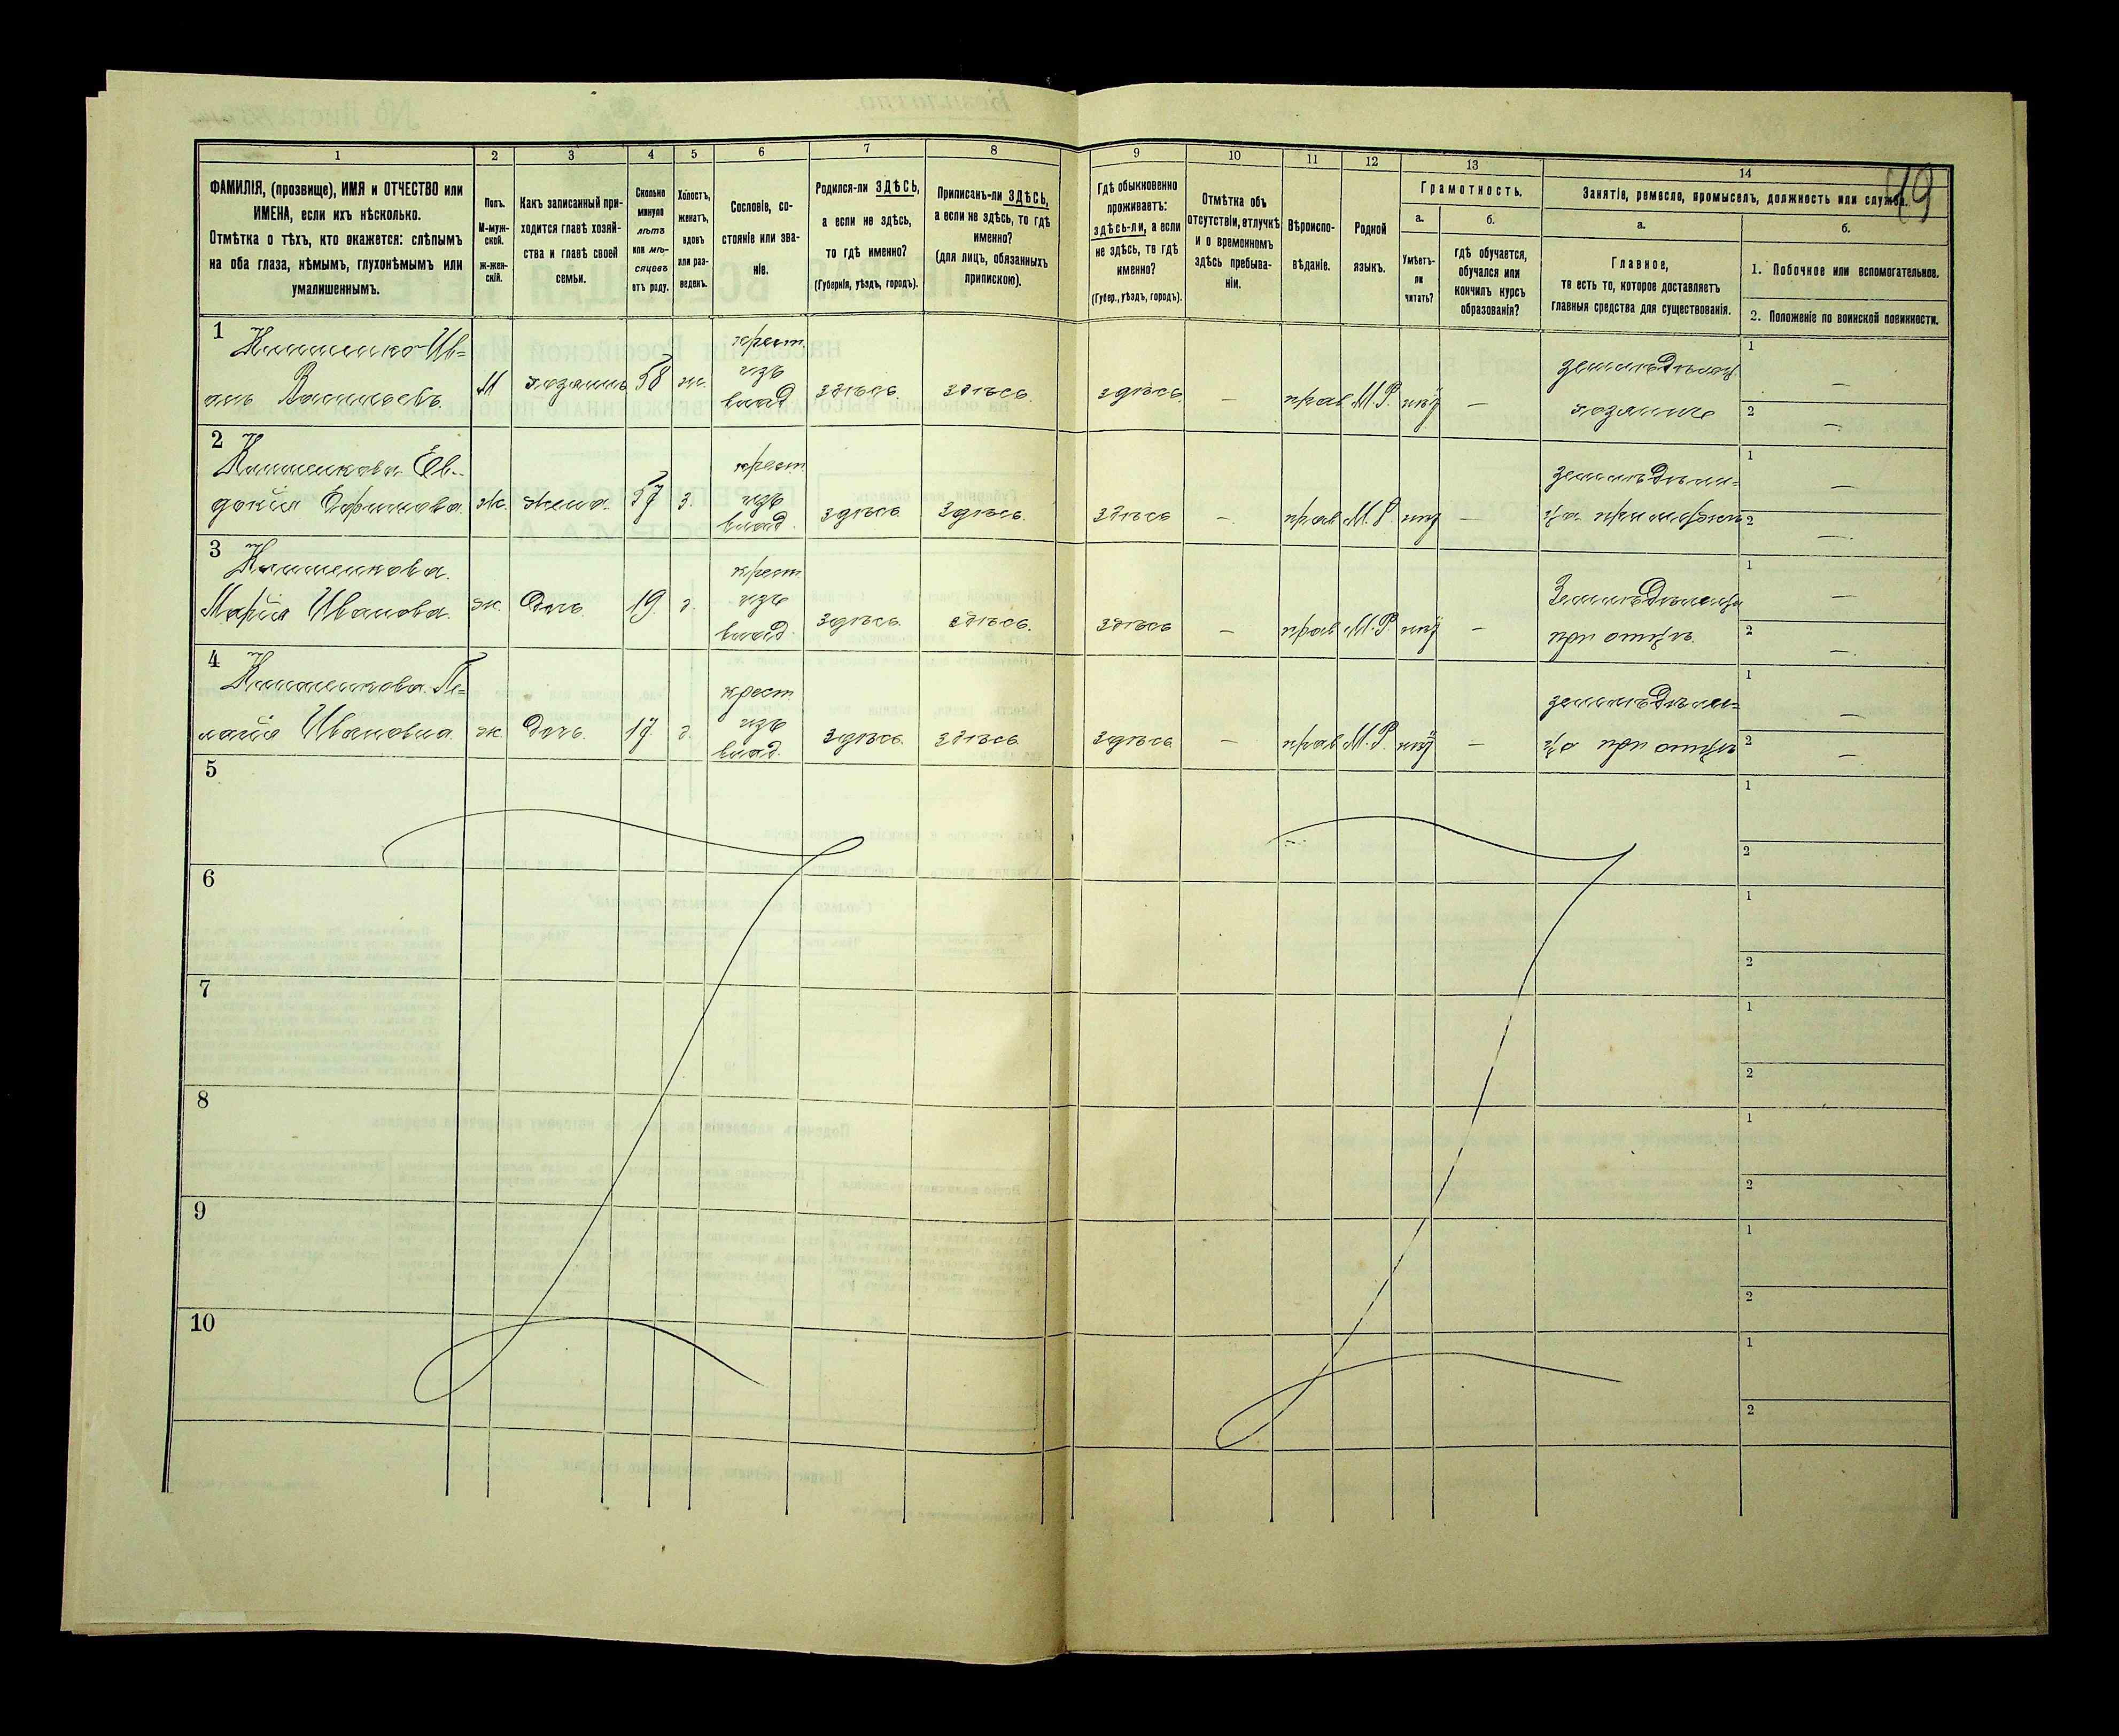 49
1 2 3 4 5 6 7 8 9 10 11 12 13 14
ФАМИЛІЯ, (прозвище), ИМЯ и ОТЧЕСТВО или
ИМЕНА, если ихъ нѣсколько.
Отмѣтка о тѣхъ, кто окажется: слѣпымъ
на оба глаза, нѣмымъ, глухонѣмымъ или
умалишеннымъ.
Полъ.
М-муж-
ской.
Ж-жен-
скій.
Какъ записанный при-
ходится главѣ хозяй-
ства и главѣ своей
семьи.
Сколько
минуло
лѣтъ
или мѣ-
сяцевъ
отъ роду.
Холостъ,
женатъ,
вдовъ
или раз-
веденъ.
Сословіе, со-
стояніе или зва-
ніе.
Родился-ли ЗДѢСЬ,
а если не здѣсь,
то гдѣ именно?
(Губернія, уѣздъ, городъ).
Приписанъ-ли ЗДѢСЬ,
а если не здѣсь, то гдѣ
именно?
(для лицъ, обязанныхъ
припискою).
Гдѣ обыкновенно
проживаетъ:
здѣсь-ли, а если
не здѣсь, то гдѣ
именно?
(Губер., уѣздъ, городъ).
Отмѣтка объ
отсутствіи, отлучкѣ
и о временномъ
здѣсь пребыва-
ніи.
Вѣроиспо-
вѣданіе.
Родной
языкъ.
Грамотность.
а.
Умѣетъ-
ли
читать?
б.
гдѣ обучается,
обучался или
кончилъ курсъ
образованія?
Занятіе, ремесло, промыселъ, должность или служба.
а.
Главное,
то есть то, которое доставляетъ
главныя средства для существованія.
б.
1. Побочное или вспомогательное.
2. Положеніе по воинской повинности.
1
Ив=
анъ Васильевъ.
М хозяинъ 58 ж.
крест.
изъ
влад.
здѣсь. здѣсь. здѣсь. — прав М.Р. нѣт —
земледѣлец
хозяинъ
1 —
2 —
2
Ев-
докія Ефимова.
ж. жена. 57 з.
крест.
изъ
влад.
здѣсь. здѣсь. здѣсь — прав М.Р. нѣт —
1 —
2 —
3
Марія Иванова.
ж. Дочь. 19. д.
крест.
изъ
влад.
здѣсь. здѣсь. здѣсь — прав М.Р. нѣт —
Земледѣлица
при отцѣ.
1 —
2 —
4
Пе=
лагія Ивановна.
ж. Дочь. 17. д.
крест.
изъ
влад.
здѣсь. здѣсь. здѣсь. — прав М.Р. нѣт —
земледѣли=
ца при отцѣ
1 —
2 —
5
1
2
6
1
2
7
1
2
8
1
2
9
1
2
10
1
2